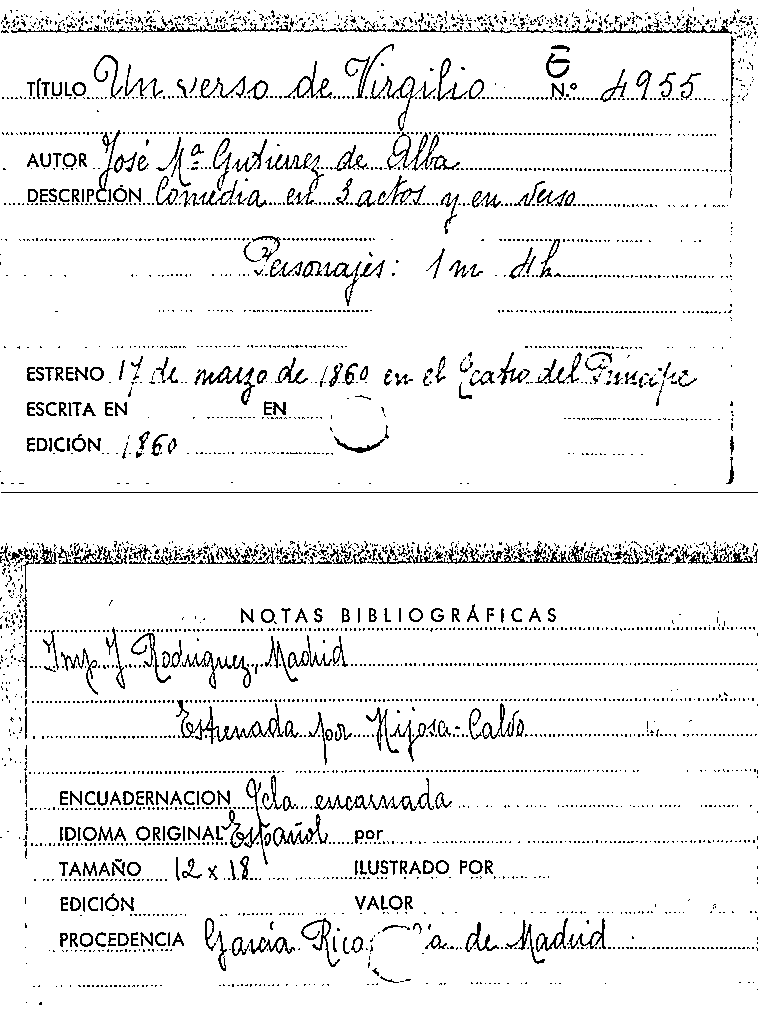 TÍTULO Un verso de Virgilio N.º 4955
AUTOR José Mª Gutierrez de Alba
DESCRIPCIÓN Comedia en 3 actos y en verso
Personajes: 1 m 4 h.
ESTRENO 17 de marzo de 1860 en el Teatro del Principe
ESCRITA EN EN
EDICIÓN 1860
NOTAS BIBLIOGRÁFICAS
Imp J Rodriguez, Madrid
Estrenada por Hijosa-Calvo
ENCUADERNACION Tela encarnada
IDIOMA ORIGINAL Español por
TAMAÑO 12 x 18 ILUSTRADO POR
EDICIÓN VALOR
PROCEDENCIA García Rico de Madrid